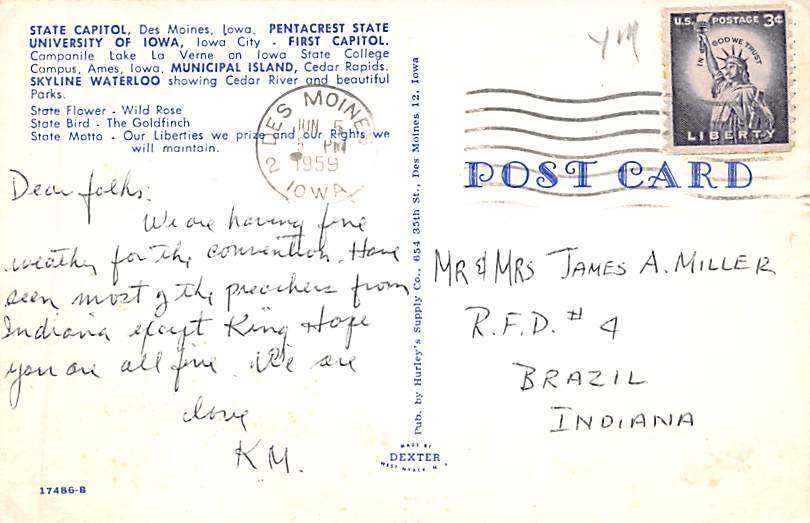 STATE CAPITOL, Des Moines, Iowa. PENTACREST STATE
UNIVERSITY OF IOWA, Iowa City - FIRST CAPITOL.
Campanile Lake La Verne on Iowa State College
Campus, Ames, Iowa. MUNICIPAL ISLAND, Cedar Rapids.
SKYLINE WATERLOO showing Cedar River and beautiful
Parks.
State Flower - Wild Rose
State Bird - The Goldfinch
State Motto - Our Liberties we prize and our Rights we
will maintain.
DES MOINES
2
JUN 5
PM
1959
IOWA
Dear folks:
We are having fine
weather for the convention. Have
seen most of the preachers from
Indiana except King Hope
you are all fine. We are
love
K.M.
17486-B
Pub. by Hurley's Supply Co., 654 35th St., Des Moines 12, Iowa
MADE BY
DEXTER
WEST NYACK N Y
YM
U.S. POSTAGE 3¢
IN GOD WE TRUST
LIBERTY
POST CARD
MR & MRS JAMES A. MILLER
R.F.D. # 4
BRAZIL
INDIANA